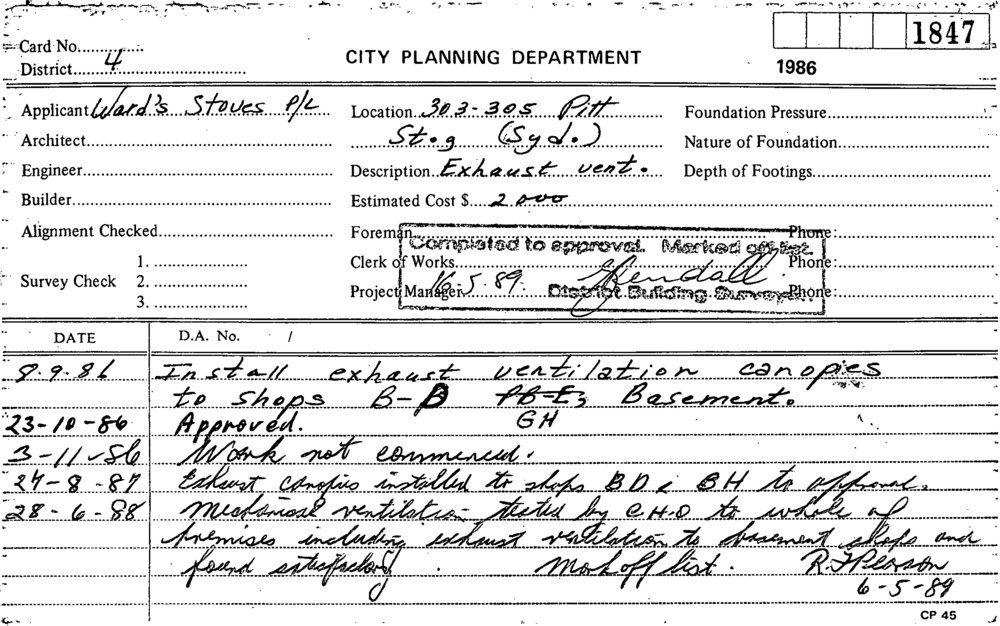 1847
Card No.
District 4
CITY PLANNING DEPARTMENT
1986
Applicant Ward's Stoves P/L
Location 303-305 Pitt
Foundation Pressure
Architect
St.g (Syd.)
Nature of Foundation
Engineer
Description Exhaust vent.
Depth of Footings
Builder
Estimated Cost $ 2000
Alignment Checked
Foreman
Phone:
Completed to approval. Marked off list.
Survey Check
1.
2.
3.
Clerk of Works
Phone:
Project Manager
16.5.89.
Kendall
District Building Surveyor
Phone:
DATE
D.A. No. /
8.9.86 Install exhaust ventilation canopies
to shops B-D Basement.
GH
23-10-86 Approved.
3-11-86 Work not commenced.
27-8-87 Exhaust canopies installed to shops BD & BH to approval.
28-6-88 Mechanical ventilation tested by C.H.O to whole of
premises including exhaust ventilation to basement shops and
found satisfactory. Mark off list. R.J Pearson
6-5-89
CP 45